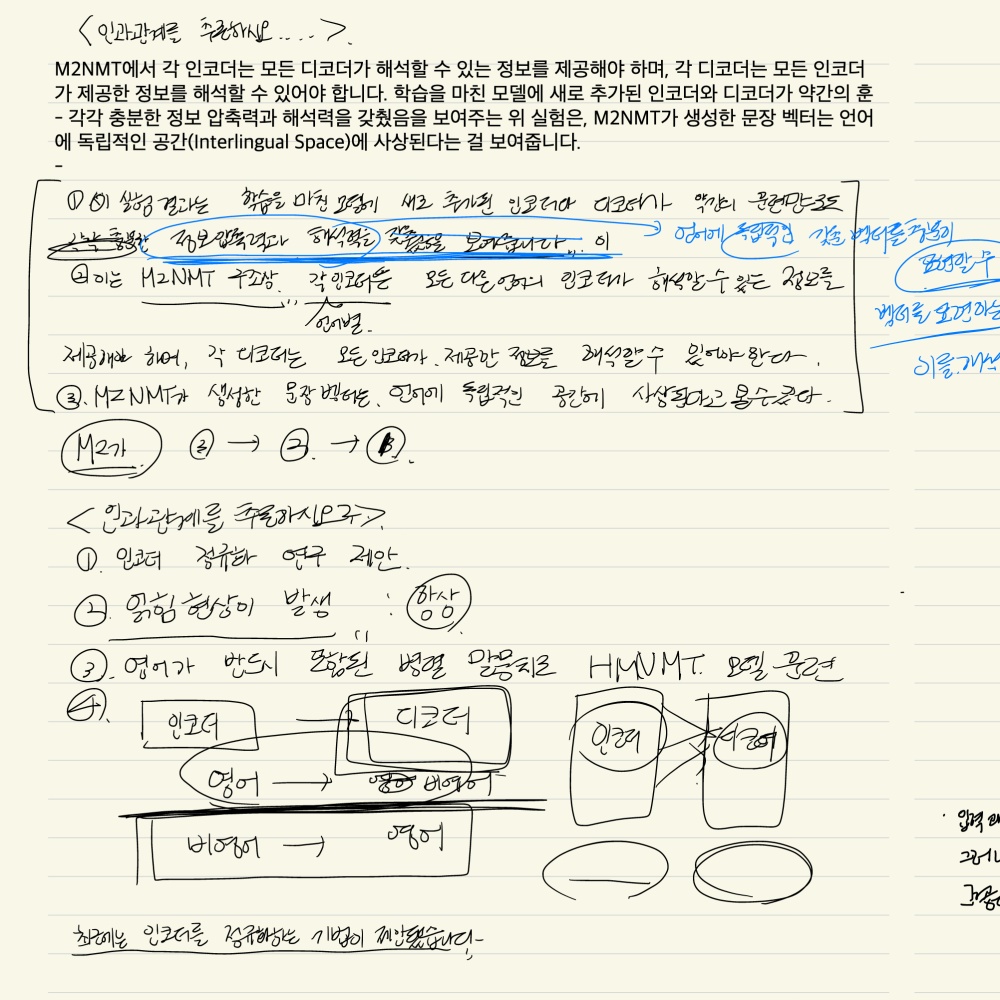 <인과관계를 추론하시오....>.
M2NMT에서 각 인코더는 모든 디코더가 해석할 수 있는 정보를 제공해야 하며, 각 디코더는 모든 인코더
가 제공한 정보를 해석할 수 있어야 합니다. 학습을 마친 모델에 새로 추가된 인코더와 디코더가 약간의 훈
- 각각 충분한 정보 압축력과 해석력을 갖췄음을 보여주는 위 실험은, M2NMT가 생성한 문장 벡터는 언어
에 독립적인 공간(Interlingual Space)에 사상된다는 걸 보여줍니다.
-
① 이 실험 결과는 학습을 마친 모델에 새로 추가된 인코더와 디코더가 약간의 훈련만으로도
각각 충분한 정보압축력과 해석력을 갖췄음을 보여줍니다. 이
언어에 독립적인 같은 벡터를
표현할 수
② 이는 M2NMT 구조상. 각 인코더는 모든 다른 언어의 인코더가 해석할 수 있는 정보를
언어별.
벡터를 표현하는
제공해야 하며, 각 디코더는 모든 인코더가 제공한 정보를 해석할 수 있어야 한다.
이를 해석
③. M2NMT가 생성한 문장 벡터는. 언어에 독립적인 공간에 사상된다고 볼 수 있다.
M2가. ③ → ②. → ①.
<인과관계를 추론하시오>.
①. 인코더 정규화 연구 제안.
② 얽힘 현상이 발생 : 항상
③. 영어가 반드시 포함된 병렬 말뭉치로 HMNMT. 모델 훈련
④. 인코더 → 디코더
인코더 디코더
영어 → 비영어
비영어 → 영어
입력
그러나
최근에는 인코더를 정규화하는 기법이 제안됐습니다-